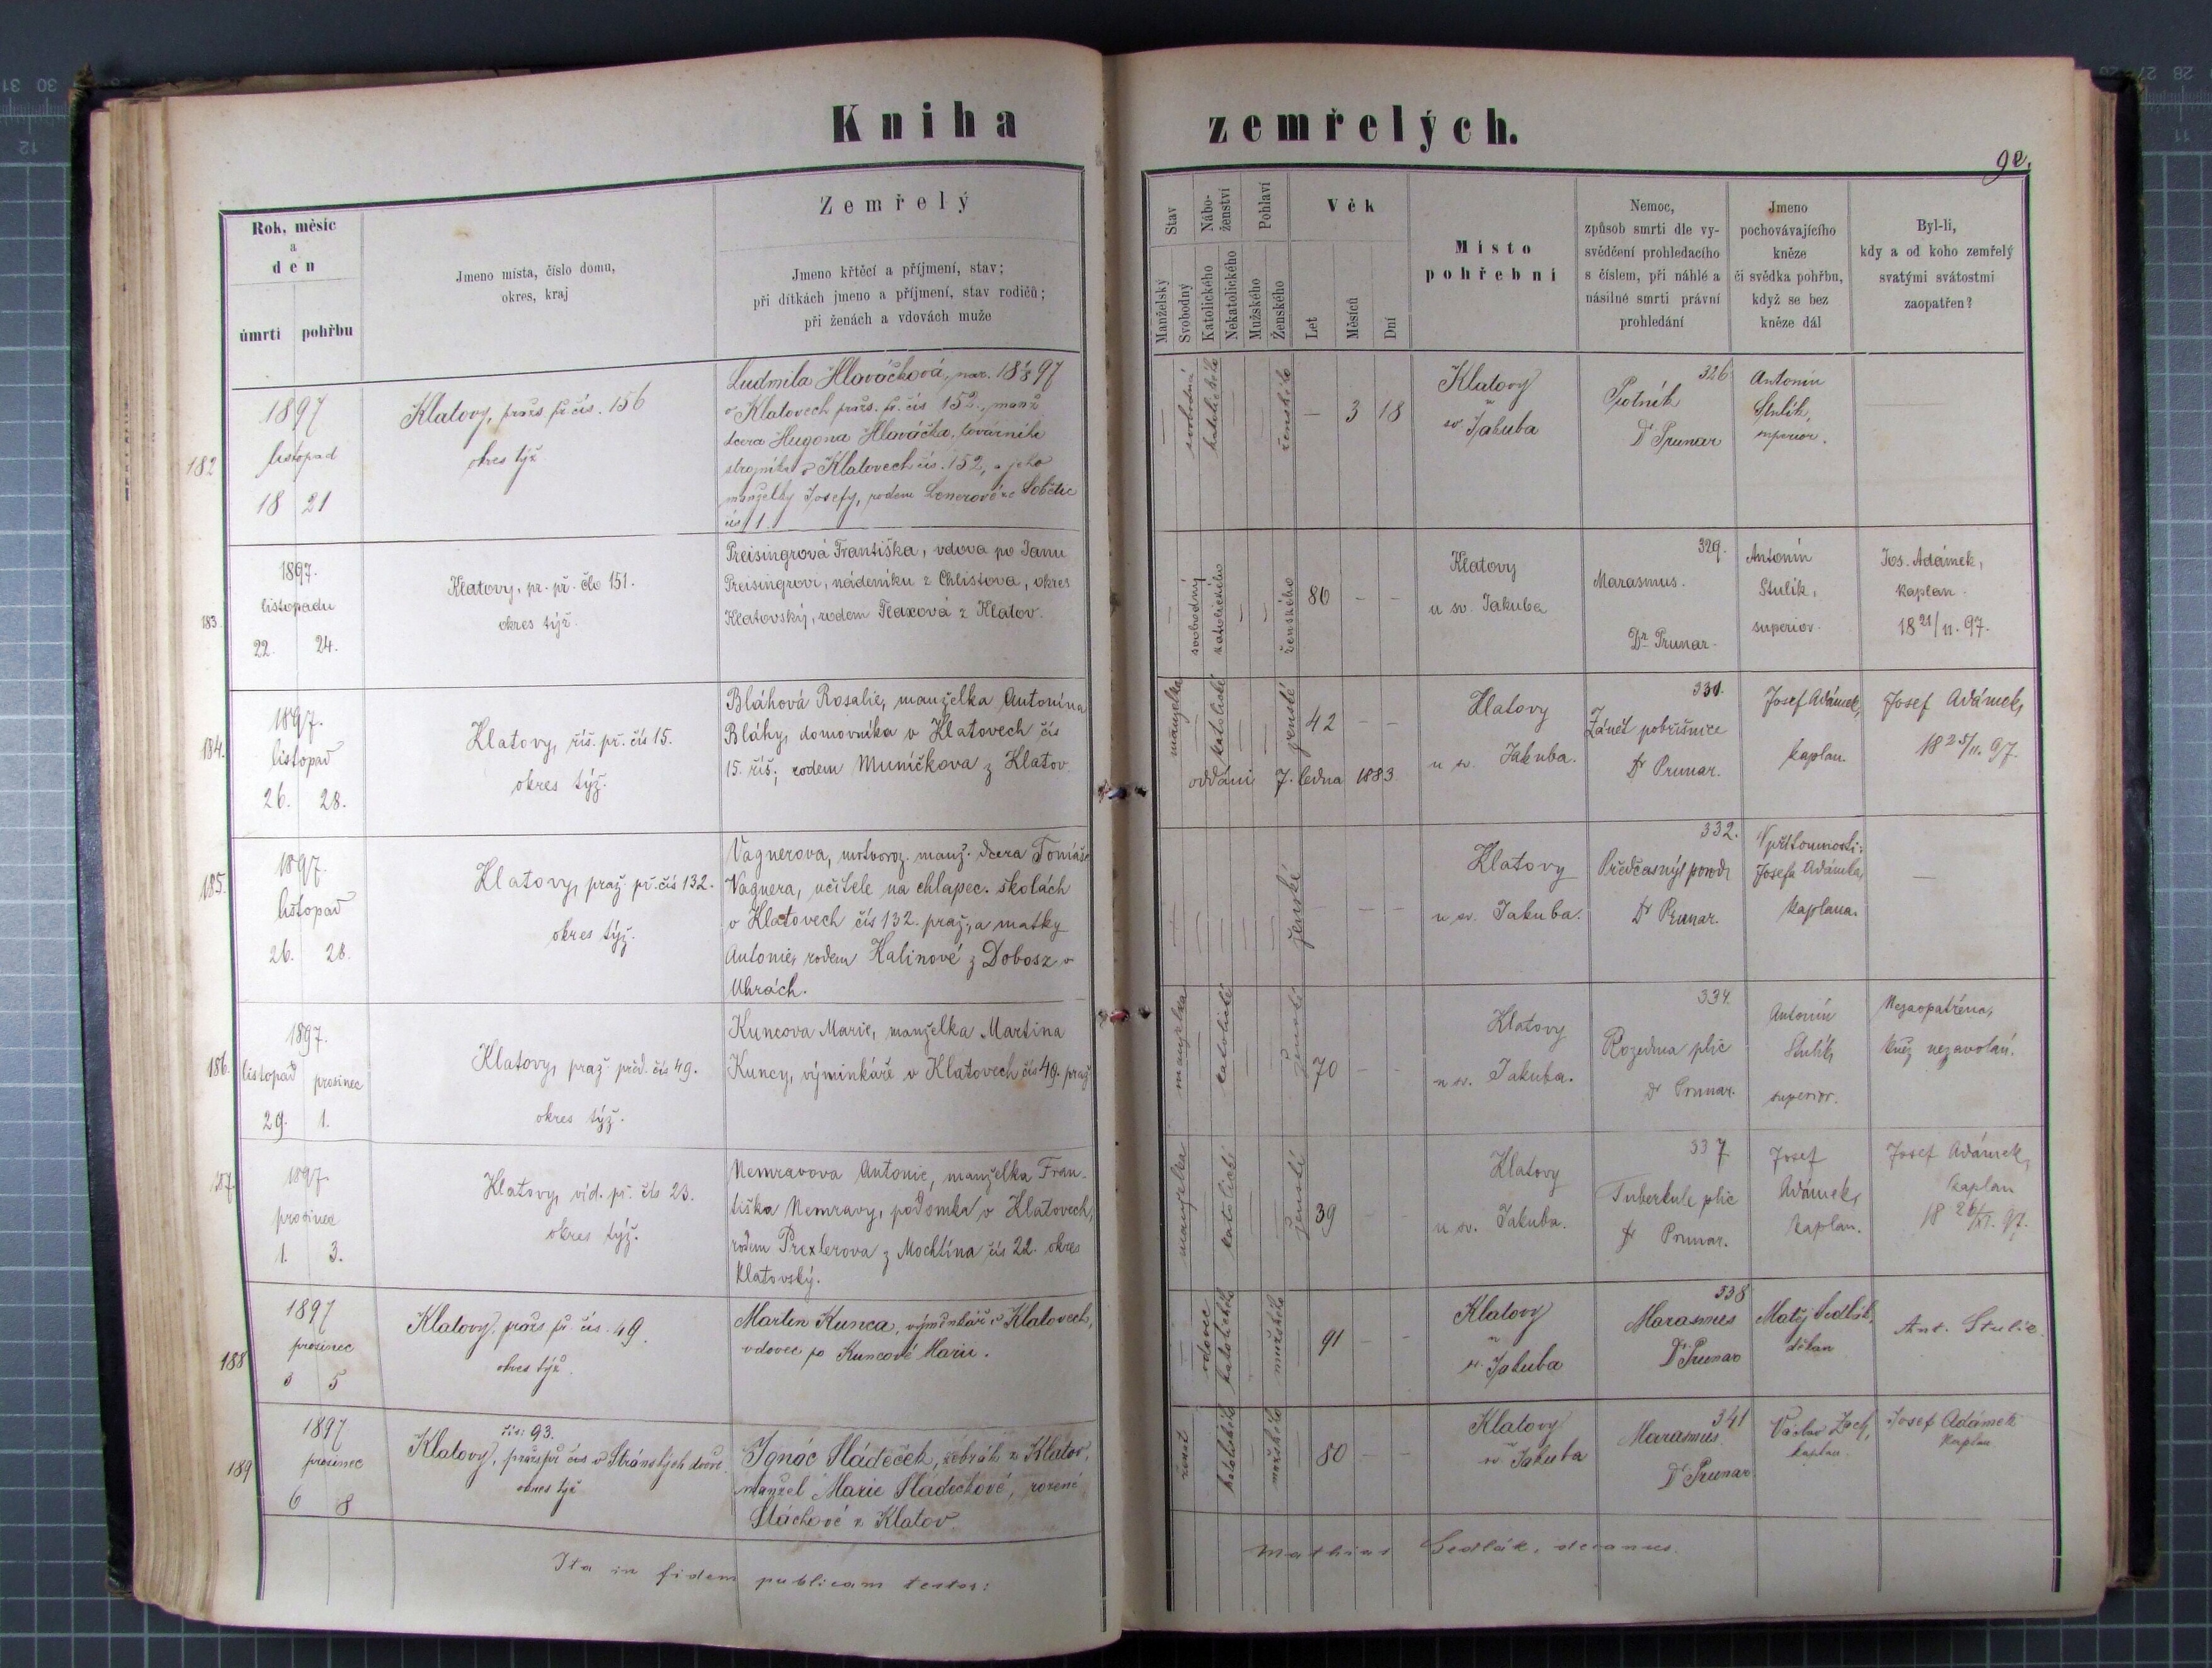 Kniha zemřelých.
92.
Rok, měsíc
a
den
úmrtí pohřbu
Jmeno místa, číslo domu,
okres, kraj
Zemřelý
Jmeno křtěcí a příjmení, stav;
při dítkách jmeno a příjmení, stav rodičů;
při ženách a vdovách muže
Stav
Manželský
Svobodný
Nábo-
ženství
Katolického
Nekatolického
Pohlaví
Mužského
Ženského
Věk
Let
Měsíců
Dní
Místo
pohřební
Nemoc,
způsob smrti dle vy-
svědčení prohledacího
s číslem, při náhlé a
násilné smrti právní
prohledání
Jmeno
pochovávajícího
kněze
či svědka pohřbu,
když se bez
kněze dál
Byl-li,
kdy a od koho zemřelý
svatými svátostmi
zaopatřen?
182
1897
listopad
18 21
Klatovy, praž. př. čís. 156
okres týž
Ludmila Hlaváčková, nar. 18 97
v Klatovech praž. př. čís 152., manž
dcera Hugona Hlaváčka, továrního
strojníka v Klatovech čís. 152, a jeho
manželky Josefy, rodem ze Sobětic
čís 1.
svobodná
katolického
ženského
— 3 18
Klatovy
u
sv Jakuba
326
Psotník
Dr Prunar
Antonín
Stulík,
superior.
183.
1897.
listopadu
22. 24.
Klatovy, pr. př. člo 151.
okres týž.
Preisingrová Františka, vdova po Janu
Preisingrovi, nádeníku z Chlistova, okres
Klatovský, rodem z Klatov.
svobodný
katolického
ženského
80 — —
Klatovy
u sv. Jakuba
329.
Marasmus.
Dr Prunar.
Antonín
Stulík,
superior.
Jos. Adámek,
kaplan.
18 21/11. 97.
184.
1897.
listopad
26. 28.
Klatovy, říš. př. čís 15.
okres týž.
Bláhová Rosalie, manželka Antonína
Bláhy, domovníka v Klatovech čís
15. říš.; rodem Muničkova z Klatov.
manželka
katolické
ženské
42 — —
oddáni 7. ledna 1883.
Klatovy
u sv. Jakuba.
331.
Zánět pobřišnice
Dr Prunar.
Josef Adámek,
kaplan.
Josef Adámek,
18 25/11. 97.
185.
1897.
listopad
26. 28.
Klatovy, praž. př. čís 132.
okres týž.
Vagnerova, mrtvoroz. manž. dcera Tomáše
Vagnera, učitele na chlapec. školách
v Klatovech čís 132. praž., a matky
Antonie, rodem Kalinové z Dobosz v
Uhrách.
ženské
— — —
Klatovy
u sv. Jakuba.
332.
Předčasný porod
Dr Prunar.
V přítomnosti:
Josefa Adámka,
kaplana.
—
186.
1897.
listopad prosinec
29. 1.
Klatovy, praž. před. čís 49.
okres týž.
Kuncova Marie, manželka Martina
Kuncy, výminkáře v Klatovech čís 49. praž
manželka
katolické
ženské
70 — —
Klatovy
u sv. Jakuba.
334.
Rozedma plic
Dr Prunar.
Antonín
Stulík,
superior.
Nezaopatřena,
kněz nezavolán.
187.
1897.
prosinec
1. 3.
Klatovy, víd. př. čís 23.
okres týž.
Nemravova Antonie, manželka Fran-
tiška Nemravy, v Klatovech,
rodem Prexlerova z Mochtína čís 22. okres
Klatovský.
manželka
katolické
ženské
39 — —
Klatovy
u sv. Jakuba.
337
Tuberkule plic
Dr Prunar.
Josef
Adámek,
kaplan.
Josef Adámek,
kaplan
18 26/XI. 97.
188
1897
prosinec
3 5
Klatovy, praž př. čís. 49.
okres týž.
Martin Kunca, výměnkář v Klatovech,
vdovec po Kuncové Marii.
vdovec
katolického
mužského
91 — —
Klatovy
u
sv. Jakuba
338
Marasmus
Dr Prunar
Matěj Sedlák,
děkan
Ant. Stulík.
189
1897
prosinec
6 8
čís: 93.
Klatovy, praž př čís v Stránských dvoře
okres týž
Ignác Hládeček, žebrák z Klatov,
manžel Marie Hládečkové, rozené
z Klatov
ženat
katolického
mužského
80 — —
Klatovy
u
sv. Jakuba
341
Marasmus
Dr Prunar
Václav Zach,
kaplan.
Josef Adámek
kaplan
Ita in fidem publicam testor:
Mathias Sedlák, decanus.